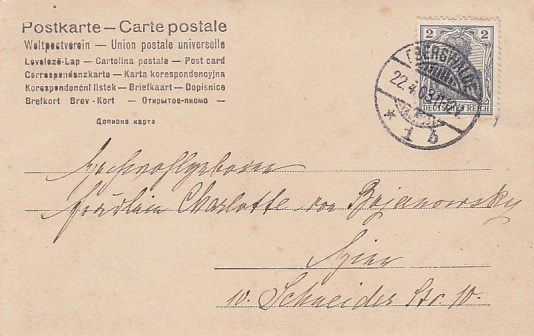 Postkarte — Carte postale
Weltpostverein — Union postale universelle
Levelező-Lap — Cartolina postale — Post card
Correspondenzkarte — Karta korespondencyjna
Korespondenční lístek — Briefkaart — Dopisnice
Brefkort Brev-Kort — Открытое-письмо —
Дописна карта
2 2
DEUTSCHES REICH
EBERSWALDE
22.4.03
* 1 b
Hochwohlgeboren
Fräulein Charlotte von Bojanowsky
Hier
Schneider Str. 10